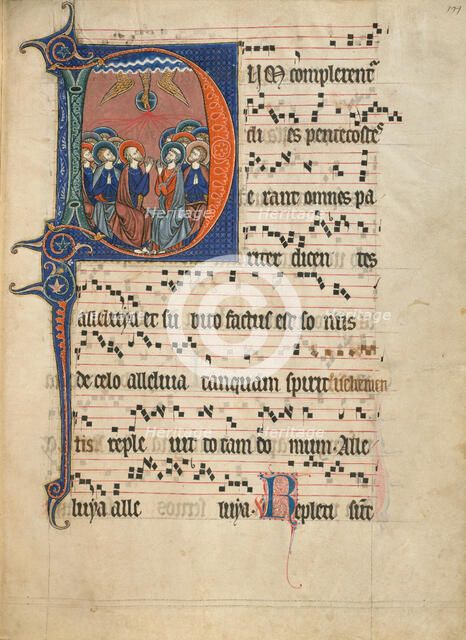 174
DUM complerent᷑
di es pentecostes
e rant omnes pa
riter dicen tes
alleluya et su bito factus est so nus
de celo alleluia tanquam spirit
tis reple uit to tam do mum. Alle
luya alle luya. Repleti sūt
Heritage
Heritage
Heritage
Heritage
Heritage
Heritage